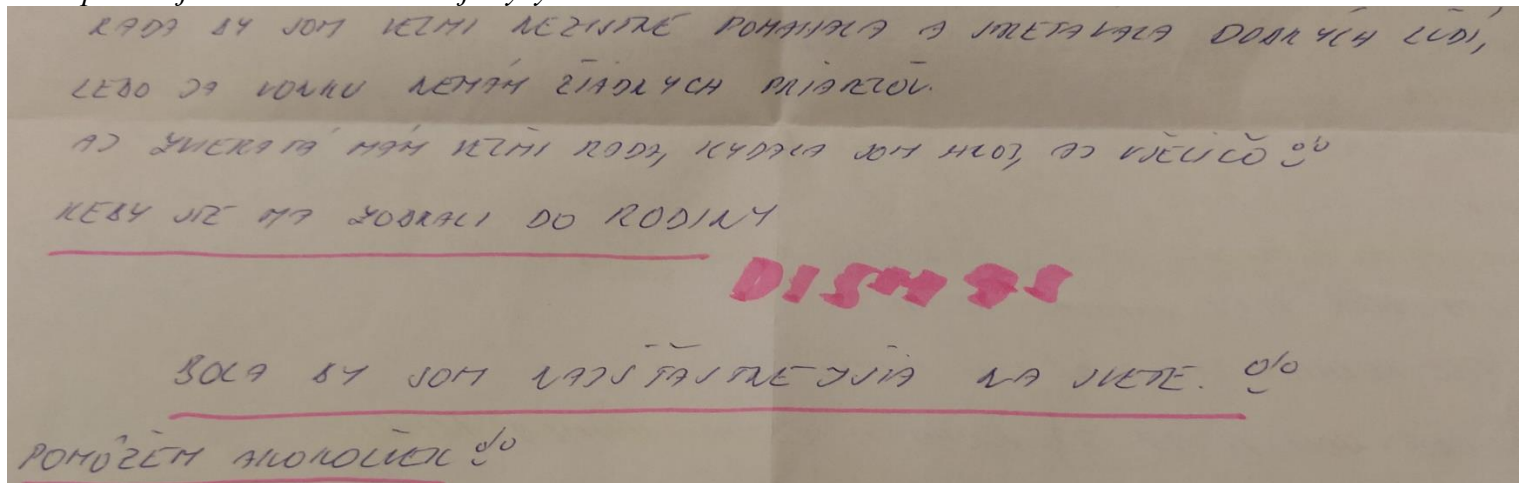 RADA BY SOM VEĽMI NEZIŠTNE POMÁHALA A STRETÁVALA DOBRÝCH ĽUDÍ,
LEBO JA VONKU NEMÁM ŽIADNYCH PRIATEĽOV.
AJ ZVIERATÁ MÁM VEĽMI RADA, KYDALA SOM HNOJ, AJ VŠELIČO
KEBY STE MA ZOBRALI DO RODINY
DISMAS
BOLA BY SOM NAJŠŤASTNEJŠIA NA SVETE.
POMÔŽEM AKOKOĽVEK